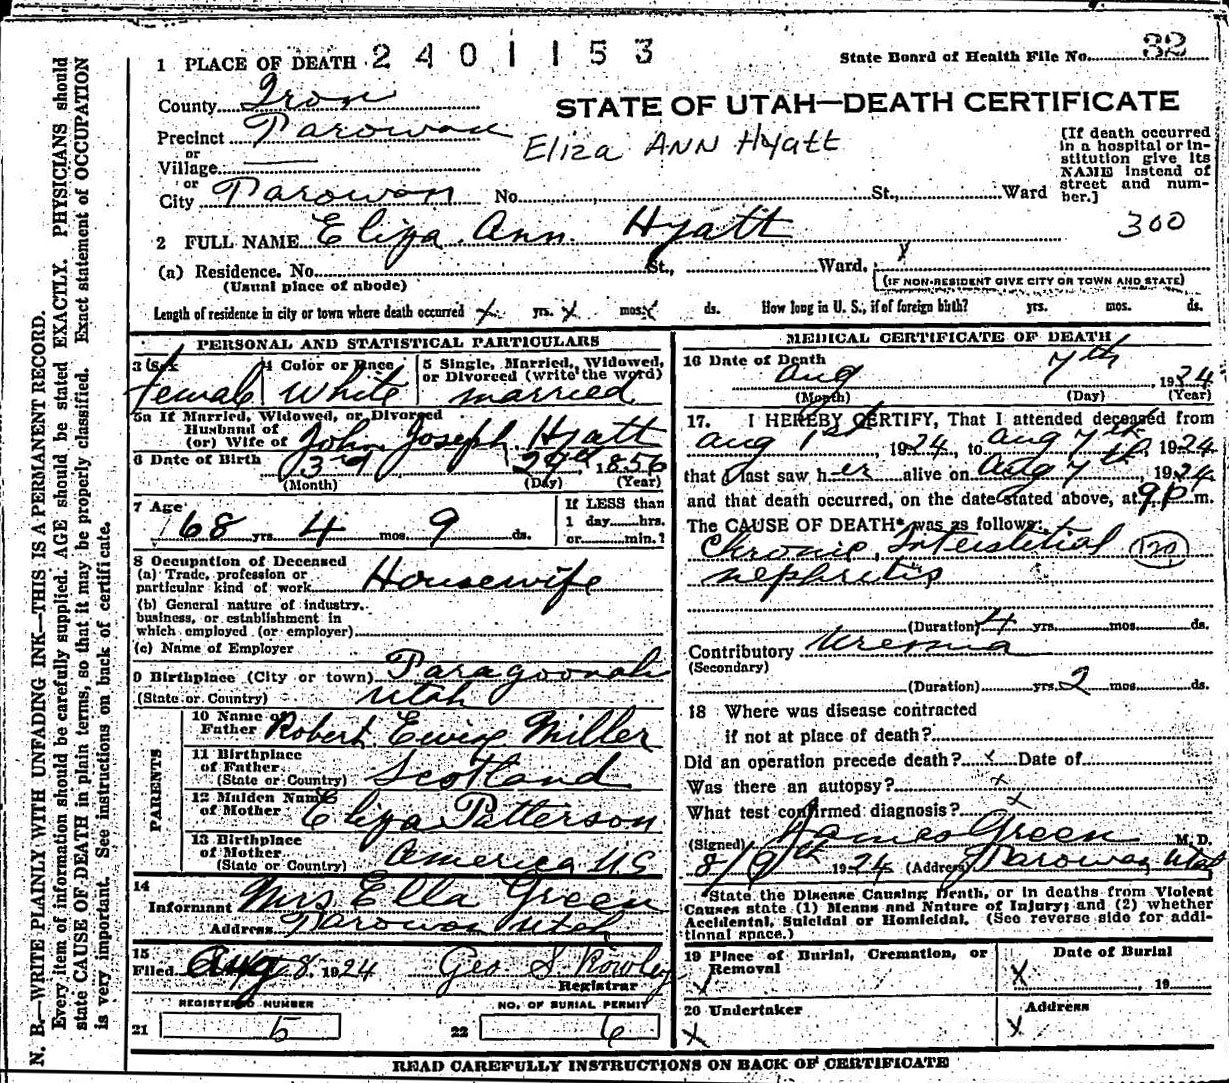 1 PLACE OF DEATH 2 4 0 1 1 5 3
State Board of Health File No. 32
County Iron
STATE OF UTAH—DEATH CERTIFICATE
Precinct Parowan
Eliza ANN Hyatt
or
Village
or
City Parowan No. St., Ward
[If death occurred
in a hospital or in-
stitution give its
NAME instead of
street and num-
ber.]
300
2 FULL NAME Eliza Ann Hyatt
(a) Residence. No. St., Ward. x
(Usual place of abode)
(IF NON-RESIDENT GIVE CITY OR TOWN AND STATE)
Length of residence in city or town where death occurred x yrs. x mos. x ds. How long in U. S., if of foreign birth? yrs. mos. ds.
PERSONAL AND STATISTICAL PARTICULARS
3 Sex
female
4 Color or Race
White
5 Single, Married, Widowed,
or Divorced (write the word)
married
5a If Married, Widowed, or Divorced
Husband of
(or) Wife of John Joseph Hyatt
6 Date of Birth 3rd 29th 1856
(Month) (Day) (Year)
7 Age
68 yrs. 4 mos. 9 ds.
If LESS than
1 day hrs.
or min.?
8 Occupation of Deceased
(a) Trade, profession or
particular kind of work Housewife
(b) General nature of industry,
business, or establishment in
which employed (or employer)
(c) Name of Employer
9 Birthplace (City or town) Paragoonah
(State or Country) Utah
PARENTS
10 Name of
Father Robert Ewing Miller
11 Birthplace
of Father
(State or Country) Scotland
12 Maiden Name
of Mother Eliza Patterson
13 Birthplace
of Mother
(State or Country) America U.S
14
Informant Mrs Ella Green
Address Parowan Utah
15
Filed Aug 8. 1924 Geo S. Rowley
Registrar
REGISTERED NUMBER
21 5
NO. OF BURIAL PERMIT
22 6
MEDICAL CERTIFICATE OF DEATH
16 Date of Death
Aug 7th 1924
(Month) (Day) (Year)
17. I HEREBY CERTIFY, That I attended deceased from
aug 1st, 1924, to aug 7th, 1924
that I last saw her alive on aug 7th, 1924
and that death occurred, on the date stated above, at 9 p m.
The CAUSE OF DEATH* was as follows:
Chronic Interstitial 129
nephritis
(Duration) 4 yrs. mos. ds.
Contributory Uremia
(Secondary)
(Duration) yrs. 2 mos. ds.
18 Where was disease contracted
if not at place of death?
Did an operation precede death? x Date of
Was there an autopsy? x
What test confirmed diagnosis? x
(Signed) James Green M. D.
8/9th 1924 (Address) Parowan Utah
*State the Disease Causing Death, or in deaths from Violent
Causes state (1) Means and Nature of Injury; and (2) whether
Accidental, Suicidal or Homicidal. (See reverse side for addi-
tional space.)
19 Place of Burial, Cremation, or
Removal
x
Date of Burial
x , 19
20 Undertaker
x
Address
x
READ CAREFULLY INSTRUCTIONS ON BACK OF CERTIFICATE
N. B.—WRITE PLAINLY WITH UNFADING INK—THIS IS A PERMANENT RECORD.
Every item of information should be carefully supplied. AGE should be stated EXACTLY. PHYSICIANS should
state CAUSE OF DEATH in plain terms, so that it may be properly classified. Exact statement of OCCUPATION
is very important. See instructions on back of certificate.